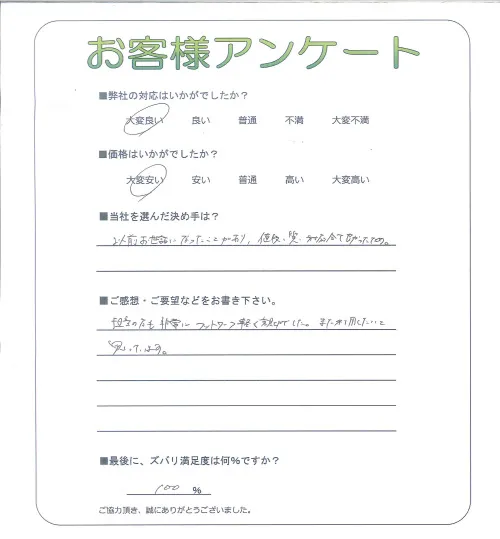 お客様アンケート
■弊社の対応はいかがでしたか？
大変良い 良い 普通 不満 大変不満
■価格はいかがでしたか？
大変安い 安い 普通 高い 大変高い
■当社を選んだ決め手は？
以前お世話になったことがあり、値段、質
■ご感想・ご要望などをお書き下さい。
担当の方も非常にフットワーク軽く親切でした。また利用したいと
思っています。
■最後に、ズバリ満足度は何％ですか？
100 %
ご協力頂き、誠にありがとうございました。